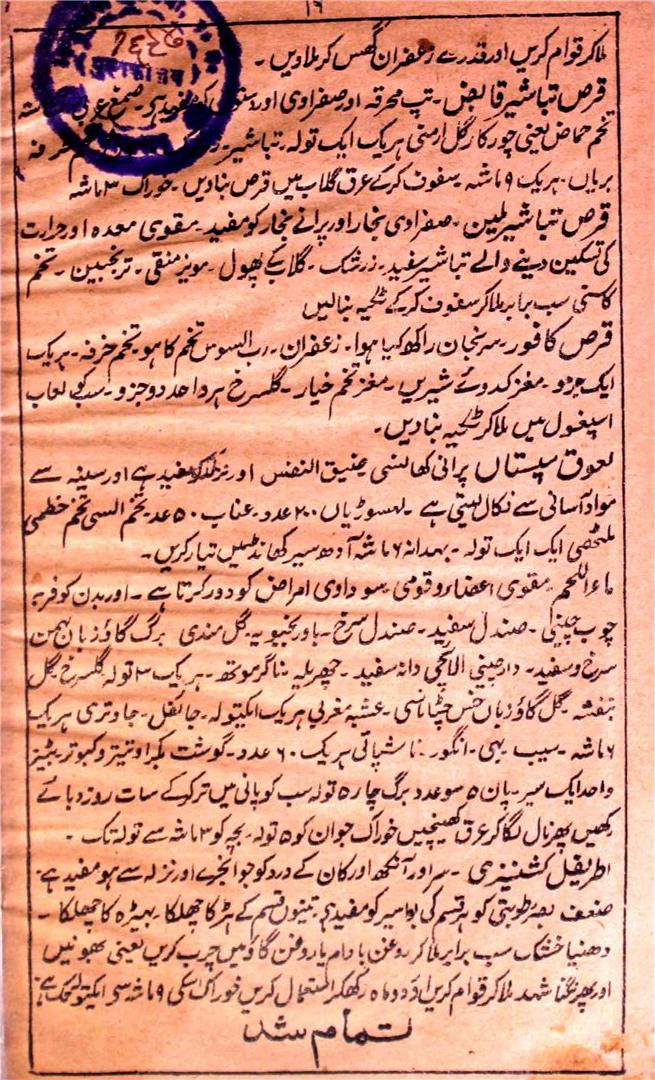 ۱۶
ملاکر قوام کریں اور قدرے زعفران گھس کر ملاویں۔
قرص تباشیر قابض۔ تپ محرقہ اور صفراوی اور صمغ عربی ماشہ
تخم حماض یعنی چورکا۔ گل ارمنی ہریک ایک تولہ۔ تباشیر۔
بریاں۔ ہریک ۹ ماشہ سفوف کرکے عرق گلاب میں قرص بنادیں۔ خوراک ۳ ماشہ
قرص تباشیر ملین۔ صفراوی بخار اور پرانے بخار کو مفید۔ مقوی معدہ اور حرارت
کی تسکین دینے والے تباشیر سفید۔ زرشک۔ گلاب کے پھول۔ مویز منقی۔ ترنجبین۔ تخم
کاسنی سب برابر ملاکر سفوف کرکے ٹکیہ بنالیں
قرص کافور۔ سرنجان راکھ کیا ہوا۔ زعفران۔ رب السوس تخم کاہو۔ تخم خرفہ۔ ہریک
ایک جزو۔ مغز کدوئے شیریں۔ مغز تخم خیار۔ گلسرخ ہر واحد دو جزو۔ سب کو لعاب
اسپغول میں ملاکر ٹکیہ بنادیں۔
لعوق سپستاں پرانی کھانسی ضیق النفس اور نزلہ کو مفید ہے اور سینہ سے
مواد آسانی سے نکال لیتی ہے۔ لہسوڑیاں ۲۰۰ عدد۔ عناب ۵۰ عدد۔ تخم السی تخم خطمی
ملٹھی ایک ایک تولہ۔ بہدانہ ۶ ماشہ آدھ سیر کھانڈ میں تیار کریں۔
ماء اللحم مقوی اعضاء و قومی سوداوی امراض کو دور کرتا ہے۔ اور بدن کو فربہ
چوب چینی۔ صندل سفید۔ صندل سرخ۔ بادرنجبویہ۔ گل منڈی برگ گاؤزبان بہمن
سرخ و سفید۔ دارچینی الائچی دانہ سفید۔ چھریلہ۔ ناگرموتھ۔ ہریک ۳ تولہ گلسرخ گل
بنفشہ۔ گل گاؤزباں خس جٹاماسی۔ عشبہ مغربی ہریک ایکتولہ۔ جائفل۔ جاوتری ہریک
۶ ماشہ۔ سیب بہی۔ انگور۔ ناشپاتی ہریک ۶۰ عدد۔ گوشت بکرا و تیتر و کبوتر بٹیر
واحد ایک سیر۔ پان ۵ سو عدد برگ چار ۵ تولہ سب کو پانی میں تر کرکے سات روز دبائے
رکھیں پھر نال لگاکر عرق کھینچیں خوراک جوان کو ۵ تولہ۔ بچہ کو ۳ ماشہ سے تولہ تک۔
اطریفل کشنیزی۔ سر اور آنکھ اور کان کے درد کو جو انجرے اور نزلہ سے ہو مفید ہے۔
ضعف بصر رطوبتی کو ہر قسم کی بواسیر کو مفید ہے۔ تینوں قسم کے ہڑ کا چھلکا۔ بہیڑہ کا چھلکا۔
دھنیا خشک سب برابر ملاکر روغن بادام یا روغن گاؤ میں چرب کریں یعنی بھونیں
اور پھر تگنا شہد ملاکر قوام کریں اور دو ماہ رکھکر استعمال کریں خوراک اسکی ۹ ماشہ سے ایکتولہ تک ہے۔
تمام شد